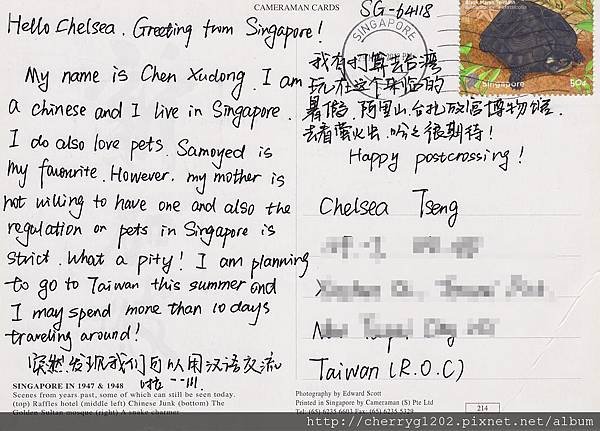 CAMERAMAN CARDS
Hello Chelsea. Greeting from Singapore!
My name is Chen Xudong. I am
a chinese and I live in Singapore.
I do also love pets. Samoyed is
my favourite. However, my mother is
not willing to have one and also the
regulation on pets in Singapore is
strict. What a pity! I am planning
to go to Taiwan this summer and
I may spend more than 10 days
traveling around!
突然发现我们可以用汉语交流
啦~~!!!
SINGAPORE IN 1947 & 1948
Scenes from years past, some of which can still be seen today.
(top) Raffles hotel (middle left) Chinese Junk (bottom) The
Golden Sultan mosque (right) A snake charmer
SG-64118
SINGAPORE
Black Marsh Terrapin
Singapore
50¢
我有打算去台湾
玩在这个来临的
暑假. 阿里山. 台北故宫博物馆.
去看萤火虫. 哈哈很期待!
Happy postcrossing!
Chelsea Tseng
Taiwan (R.O.C)
Photography by Edward Scott
Printed in Singapore by Cameraman (S) Pte Ltd
Tel: (65) 6235 6603 Fax: (65) 6235 5329
214
http://cherryg1202.pixnet.net/album